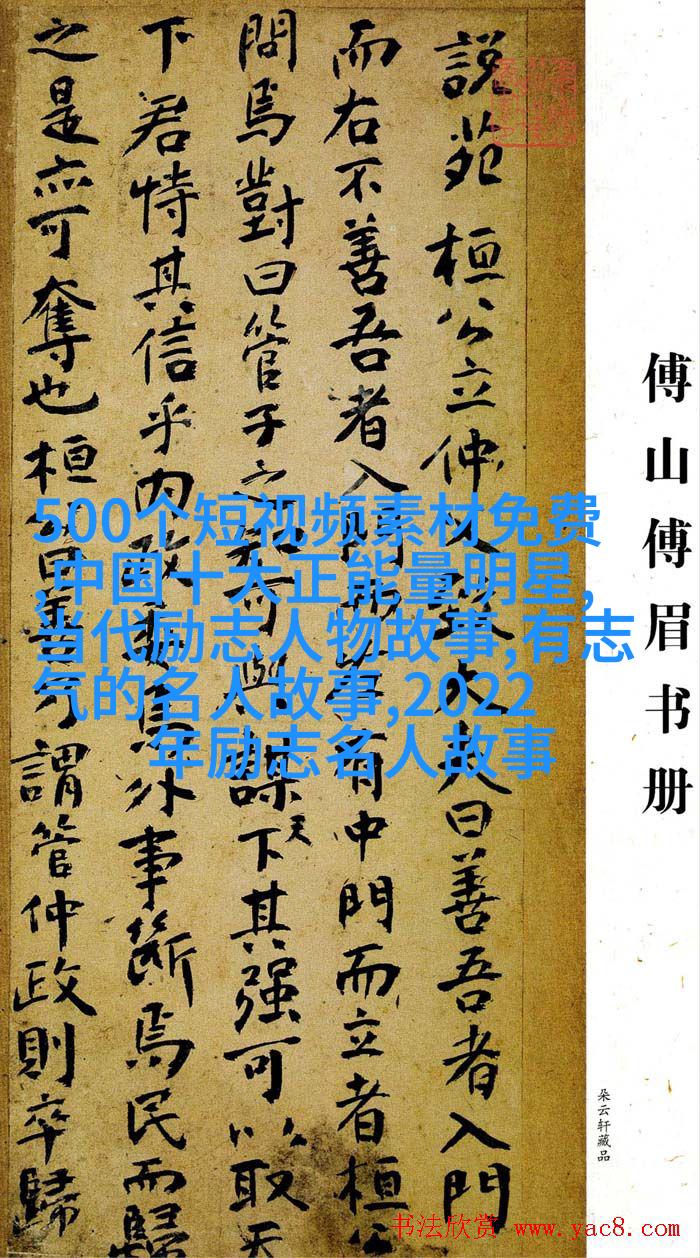 說苑 桓公立仲父致大夫曰善吾者入門
而右不善吾者入門而左有中門而立者桓公
問焉對曰管子之知可與謀天下其强可以取天
下君恃其信乎內政委焉外事斷焉民而歸
之是亦可奪也桓公曰善乃謂管仲政則卒歸
傅山傅眉书册
朵云轩藏品
500个短视频素材免费
,中国十大正能量明星,
当代励志人物故事,有志
气的名人故事,2022
年励志名人故事
书法欣赏 www.yac8.com